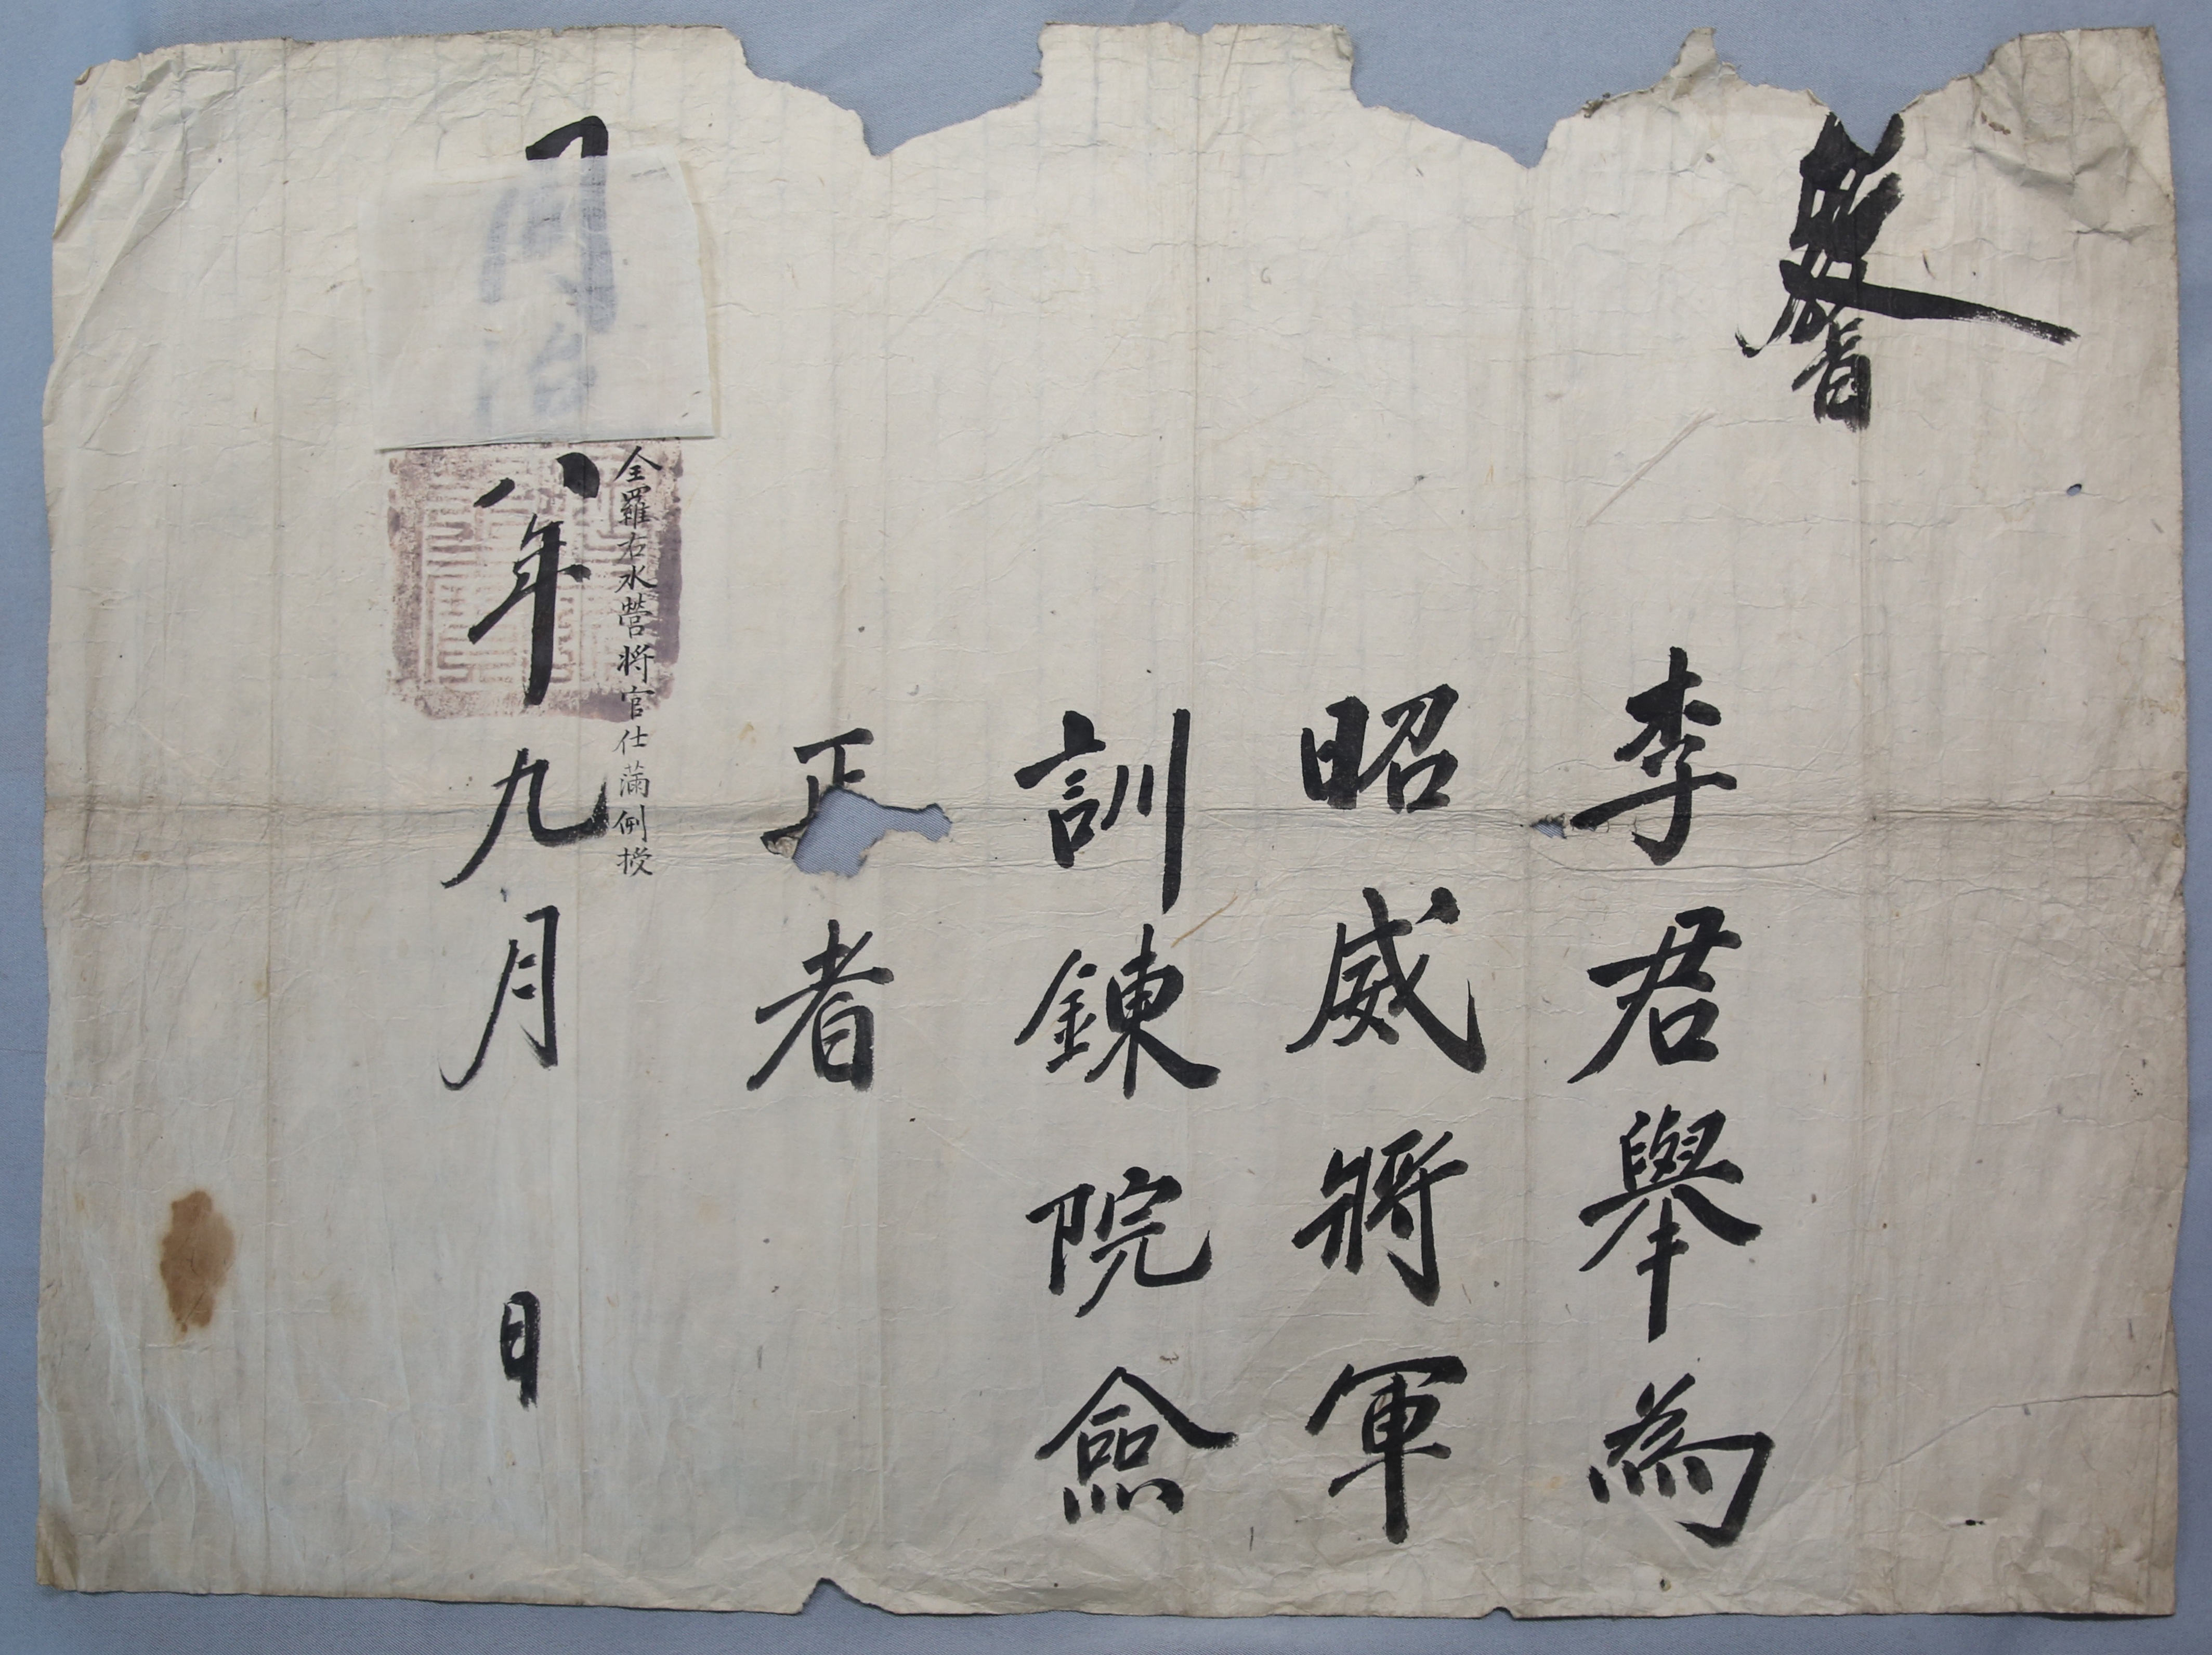 教旨
李君舉為
昭威將軍
訓鍊院僉
正者
同治八年九月 日
全羅右水營將官仕滿例授